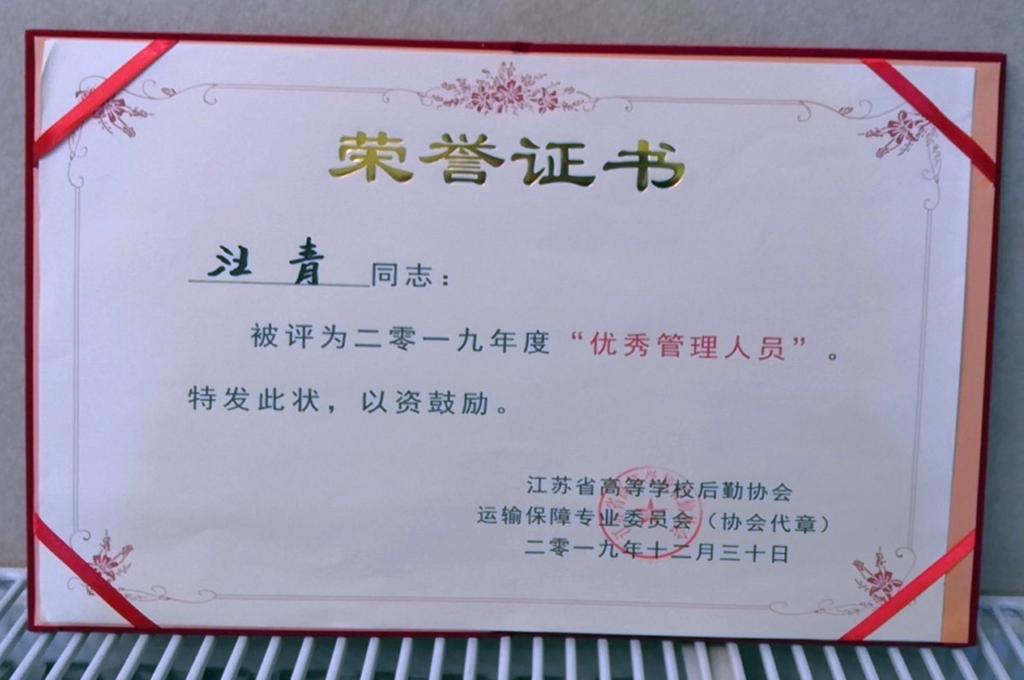 荣誉证书
汪青同志：
被评为二零一九年度“优秀管理人员”。
特发此状，以资鼓励。
江苏省高等学校后勤协会
运输保障专业委员会（协会代章）
二零一九年十二月三十日